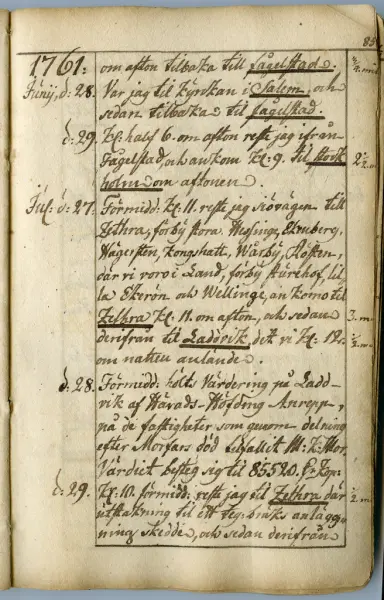 85
1761. om afton tilbaka till Fågelstad. 2/4. mil
Junij, d: 28. Var jag til kyrkan i Salem, och
sedan tilbaka til Fågelstad.
d: 29. Kl: half 6. om afton reste jag ifrån
Fågelstad, och ankom Kl: 9. til Stock 2 1/2. m.
holm om aftonen.
Jul: d: 27. Förmidd: Kl: 11. reste jag siövägen till
Zethra, förby stora Hessinge, Ekensberg,
Hägersten, Kongshatt, Wårby,
där vi voro i Land, förby Stürehof, lil-
la Ekerön och Wellinge, ankomo til
Zethra Kl: 11. om afton, och sedan 3. m
derifrån til Ladvik, det vi Kl: 12. 1/2. m
om natten anlände.
d: 28. Förmidd: hölts Värdering på Ladd-
vik af Härads-Höfding Anrepp,
på de fastigheter som genom delning
efter Morfars död tilfallit M: K: Mor.
Värdiet besteg sig til 85520.
d: 29. Kl: 10. förmidd: reste jag til Zethra där 1/2. m
utstakning til ett Teg-bruks anlägg-
ning skedde, och sedan derifrån